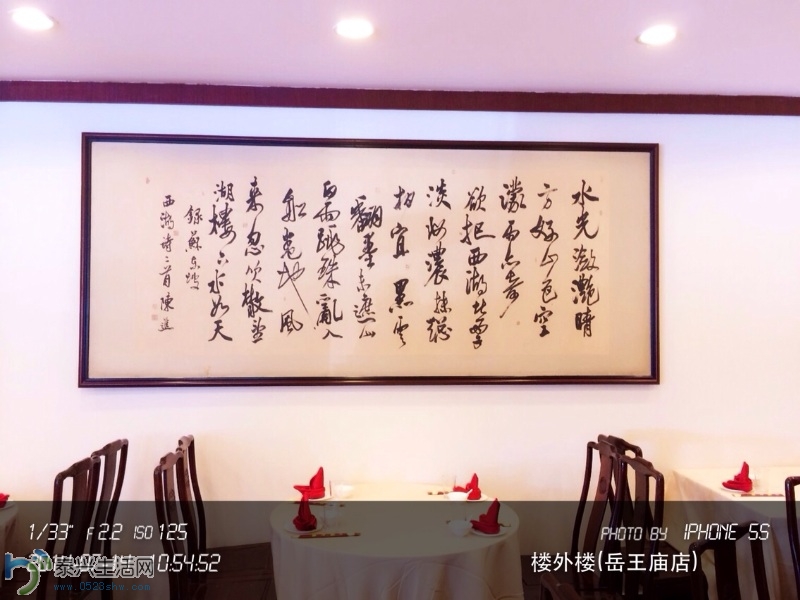 水光潋灩晴
方好山色空
濛雨亦奇
欲把西湖比西子
淡妝濃抹總
相宜 黑雲
翻墨未遮山
白雨跳珠亂入
船 卷地風
来忽吹散望
湖樓下水如天
録蘇东坡
西湖诗二首陳
1/33" F2.2 ISO125
10:54:52
PHOTO BY IPHONE 5S
楼外楼(岳王庙店)
泰兴生活网
www.0523shw.com